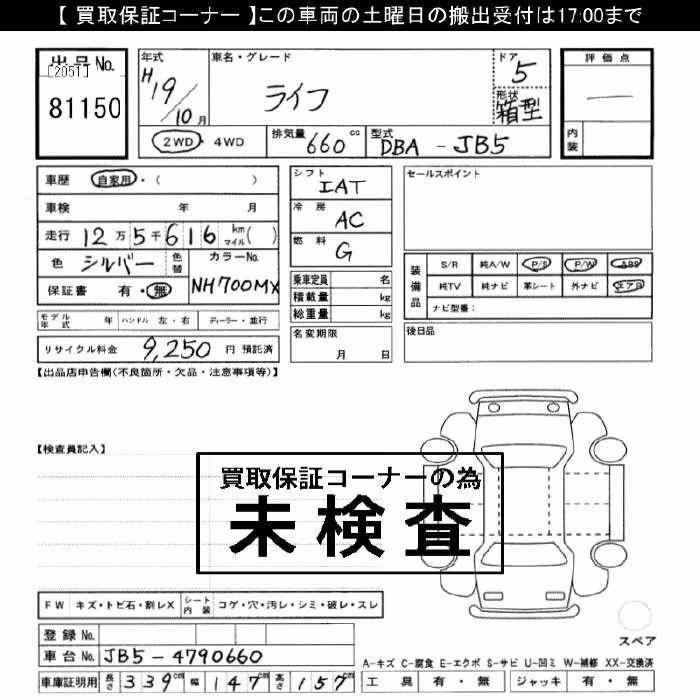 【 買取保証コーナー 】この車両の土曜日の搬出受付は17:00まで
出品No.
[2051]
81150
年式
H19/10月
車名・グレード
ライフ
ドア
5
形状
箱型
評価点
内装
2WD・4WD
排気量 660cc
型式 DBA - JB5
車歴 自家用・( )
車検 年 月
走行 12万5千616km マイル( )
色 シルバー 色替
カラーNo.
NH700MX
保証書 有・無
モデル年式 年 ハンドル 左・右 ディーラー・並行
リサイクル料金 9,250 円 預託済
シフト
IAT
冷房
AC
燃料
G
乗車定員 名
積載量 kg
総重量 kg
名変期限
月 日
セールスポイント
装備品
S/R 純A/W P/S P/W ABS
純TV 純ナビ 革シート 外ナビ エアB
ナビ型番:
後日品
【出品店申告欄(不良箇所・欠品・注意事項等)】
【検査員記入】
買取保証コーナーの為
未検査
FW キズ・トビ石・割レX シート内装 コゲ・穴・汚レ・シミ・破レ・スレ
登録No.
車台No. JB5-4790660
車庫証明用 長さ 339cm 幅 147cm 高さ 157cm
スペア
A-キズ C-腐食 E-エクボ S-サビ U-凹ミ W-補修 XX-交換済
工具 有・無 ジャッキ 有・無